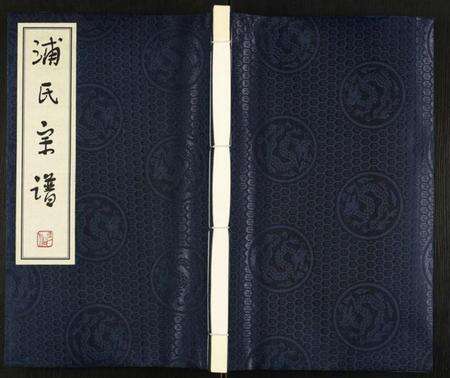 浦氏宗谱